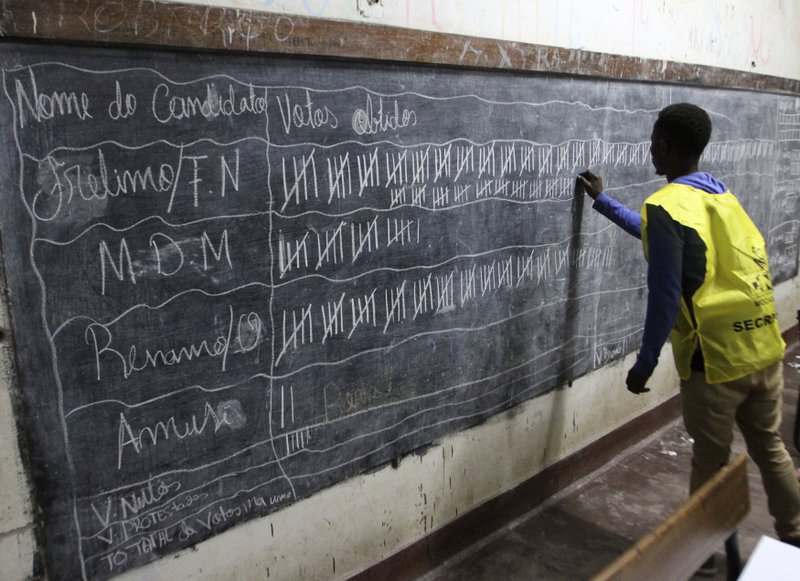 Nome do Candidato Votos obtidos
Frelimo/F.N
M.D.M
Renamo/O
Amusi
V. Nulos
V. PROTESTADOS
TOTAL de Votos na urna
SECR